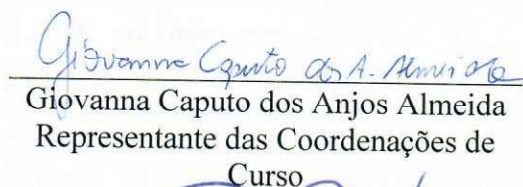 Giovanna Caputo dos A. Almeida
Giovanna Caputo dos Anjos Almeida
Representante das Coordenações de
Curso